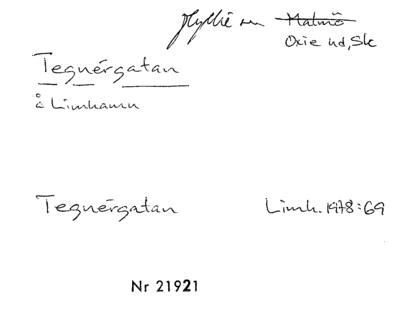 Hyllie sn Malmö
Oxie hd, Sk
Tegnérgatan
å Limhamn
Tegnérgatan Limh. 1978:69
Nr 21921